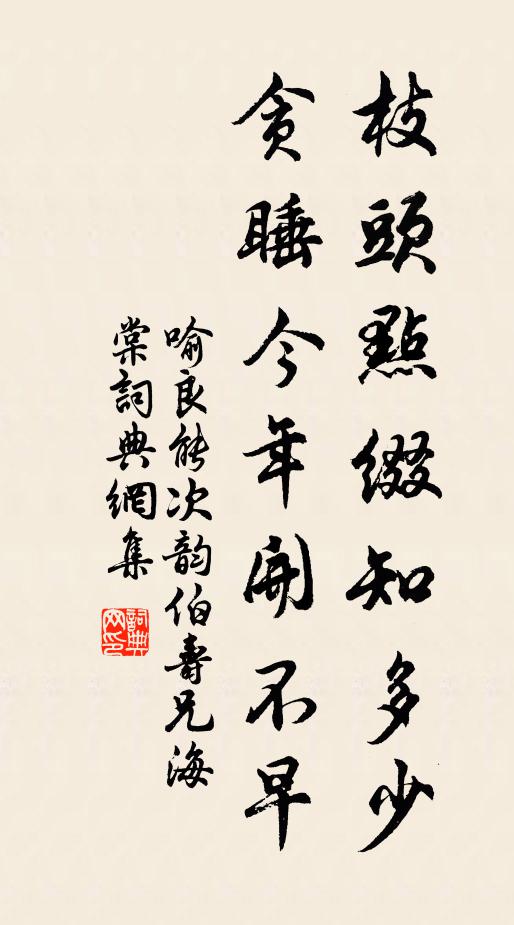 枝頭點綴知多少
貪睡今年開不早
喻良能次韵伯壽兄海
棠詞典網集
詞典
网印